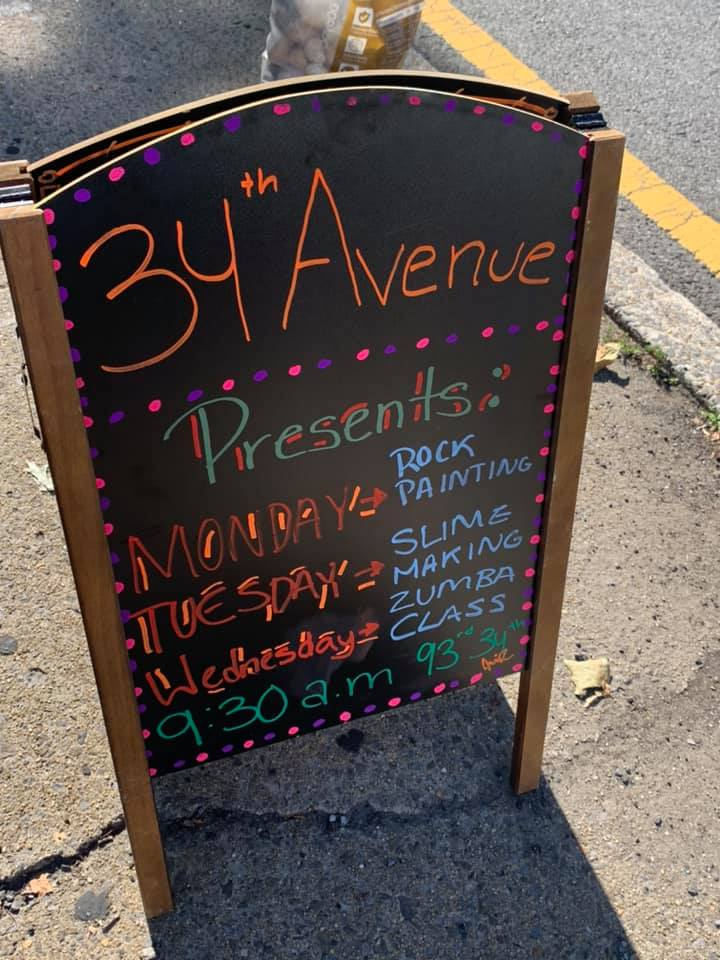 34th Avenue
Presents:
MONDAY → ROCK
PAINTING
TUESDAY → SLIME
MAKING
Wednesday → ZUMBA
CLASS
9:30 a.m 93rd 34th